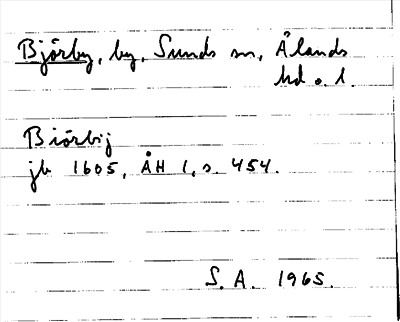 Bjärby, by, Sunds sn, Ålands
hd o. l.
Biärbij
jb 1605, ÅH 1, s. 454.
S. A. 1965.